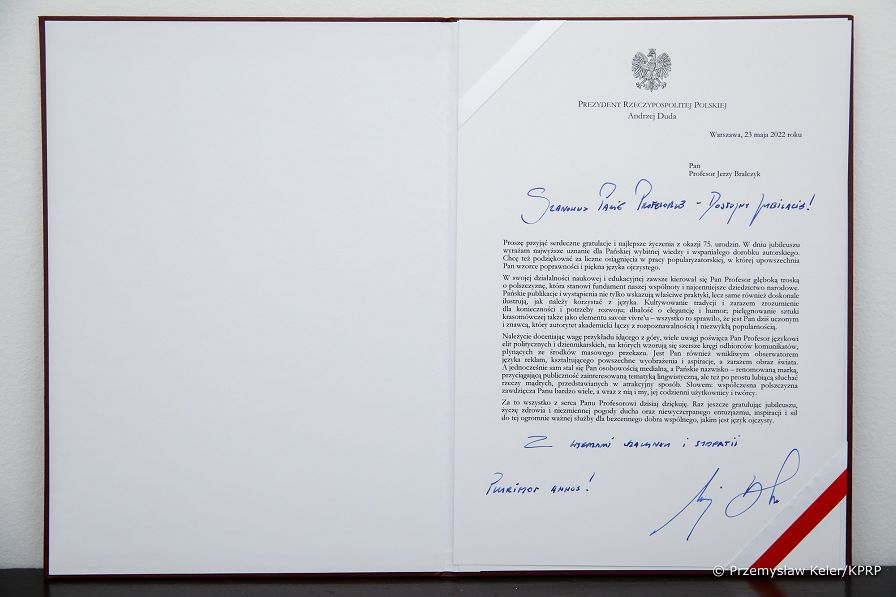 PREZYDENT RZECZYPOSPOLITEJ POLSKIEJ
Andrzej Duda
Warszawa, 23 maja 2022 roku
Pan
Profesor Jerzy Bralczyk
Szanowny Panie Profesorze – Dostojny Jubilacie!
Proszę przyjąć serdeczne gratulacje i najlepsze życzenia z okazji 75. urodzin. W dniu jubileuszu
wyrażam najwyższe uznanie dla Pańskiej wybitnej wiedzy i wspaniałego dorobku autorskiego.
Chcę też podziękować za liczne osiągnięcia w pracy popularyzatorskiej, w której upowszechnia
Pan wzorce poprawności i piękna języka ojczystego.
W swojej działalności naukowej i edukacyjnej zawsze kierował się Pan Profesor głęboką troską
o polszczyznę, która stanowi fundament naszej wspólnoty i najcenniejsze dziedzictwo narodowe.
Pańskie publikacje i wystąpienia nie tylko wskazują właściwe praktyki, lecz same również doskonale
ilustrują, jak należy korzystać z języka. Kultywowanie tradycji i zarazem zrozumienie
dla konieczności i potrzeby rozwoju; dbałość o elegancję i humor; pielęgnowanie sztuki
krasomówczej także jako elementu savoir vivre'u – wszystko to sprawiło, że jest Pan dziś uczonym
i znawcą, który autorytet akademicki łączy z rozpoznawalnością i niezwykłą popularnością.
Należycie doceniając wagę przykładu idącego z góry, wiele uwagi poświęca Pan Profesor językowi
elit politycznych i dziennikarskich, na których wzorują się szersze kręgi odbiorców komunikatów,
płynących ze środków masowego przekazu. Jest Pan również wnikliwym obserwatorem
języka reklam, kształtującego powszechne wyobrażenia i aspiracje, a zarazem obraz świata.
A jednocześnie sam stał się Pan osobowością medialną, a Pańskie nazwisko – renomowaną marką,
przyciągającą publiczność zainteresowaną tematyką lingwistyczną, ale też po prostu lubiącą słuchać
rzeczy mądrych, przedstawianych w atrakcyjny sposób. Słowem: współczesna polszczyzna
zawdzięcza Panu bardzo wiele, a wraz z nią i my, jej codzienni użytkownicy i twórcy.
Za to wszystko z serca Panu Profesorowi dzisiaj dziękuję. Raz jeszcze gratulując jubileuszu,
życzę zdrowia i niezmiennej pogody ducha oraz niewyczerpanego entuzjazmu, inspiracji i sił
do tej ogromnie ważnej służby dla bezcennego dobra wspólnego, jakim jest język ojczysty.
Z wyrazami szacunku i sympatii
Plurimos annos!
© Przemysław Keler/KPRP